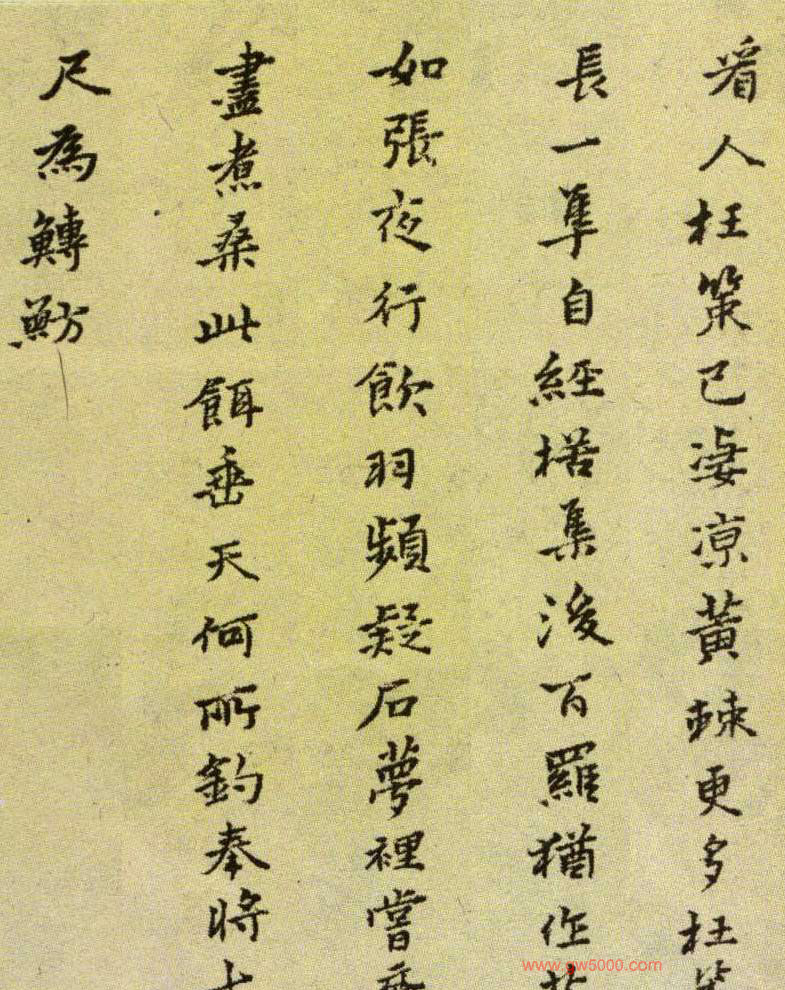 看人枉策已凄凉黃棘更多枉策
長一隼自經楛集後百羅猶作
如張夜行飲羽頻疑石夢裡嘗
盡煮桑此餌垂天何所釣奉將
尺為鱄魴
www.gw5000.com